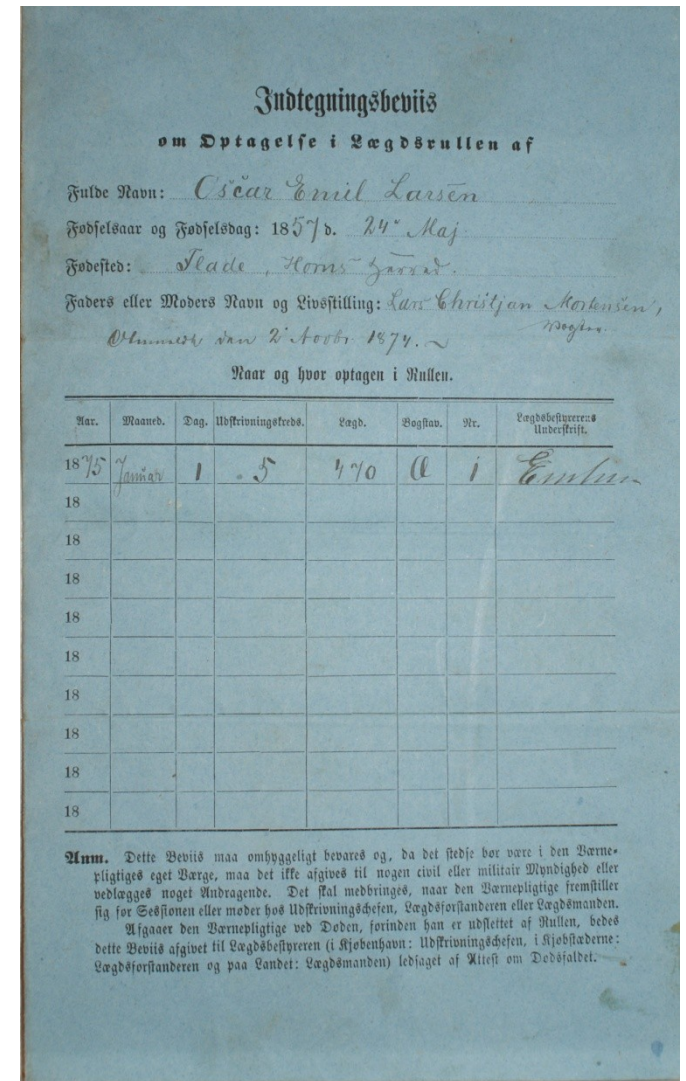 Indtegningsbeviis
om Optagelse i Lægdsrullen af
Fulde Navn: Oscar Emil Larsen
Fødselsaar og Fødselsdag: 1857 d. 24' Maj
Fødested: Flade, Horns Herred.
Faders eller Moders Navn og Livsstilling: Lars Christjan Mortensen,
den 2' Novbr 1874.
Naar og hvor optagen i Rullen.
Aar. Maaned. Dag. Udskrivningskreds. Lægd. Bogstav. Nr. Lægdsbestyrerens Underskrift.
1875 Januar 1 5 470 Œ 1
18
18
18
18
18
18
18
18
18
Anm. Dette Beviis maa omhyggeligt bevares og, da det stedse bør være i den Værne-
pligtiges eget Værge, maa det ikke afgives til nogen civil eller militair Myndighed eller
vedlægges noget Andragende. Det skal medbringes, naar den Værnepligtige fremstiller
sig for Sessionen eller møder hos Udskrivningschefen, Lægdsforstanderen eller Lægdsmanden.
Afgaaer den Værnepligtige ved Døden, forinden han er udslettet af Rullen, bedes
dette Beviis afgivet til Lægdsbestyreren (i Kjøbenhavn: Udskrivningschefen, i Kjøbstæderne:
Lægdsforstanderen og paa Landet: Lægdsmanden) ledsaget af Attest om Dødsfaldet.